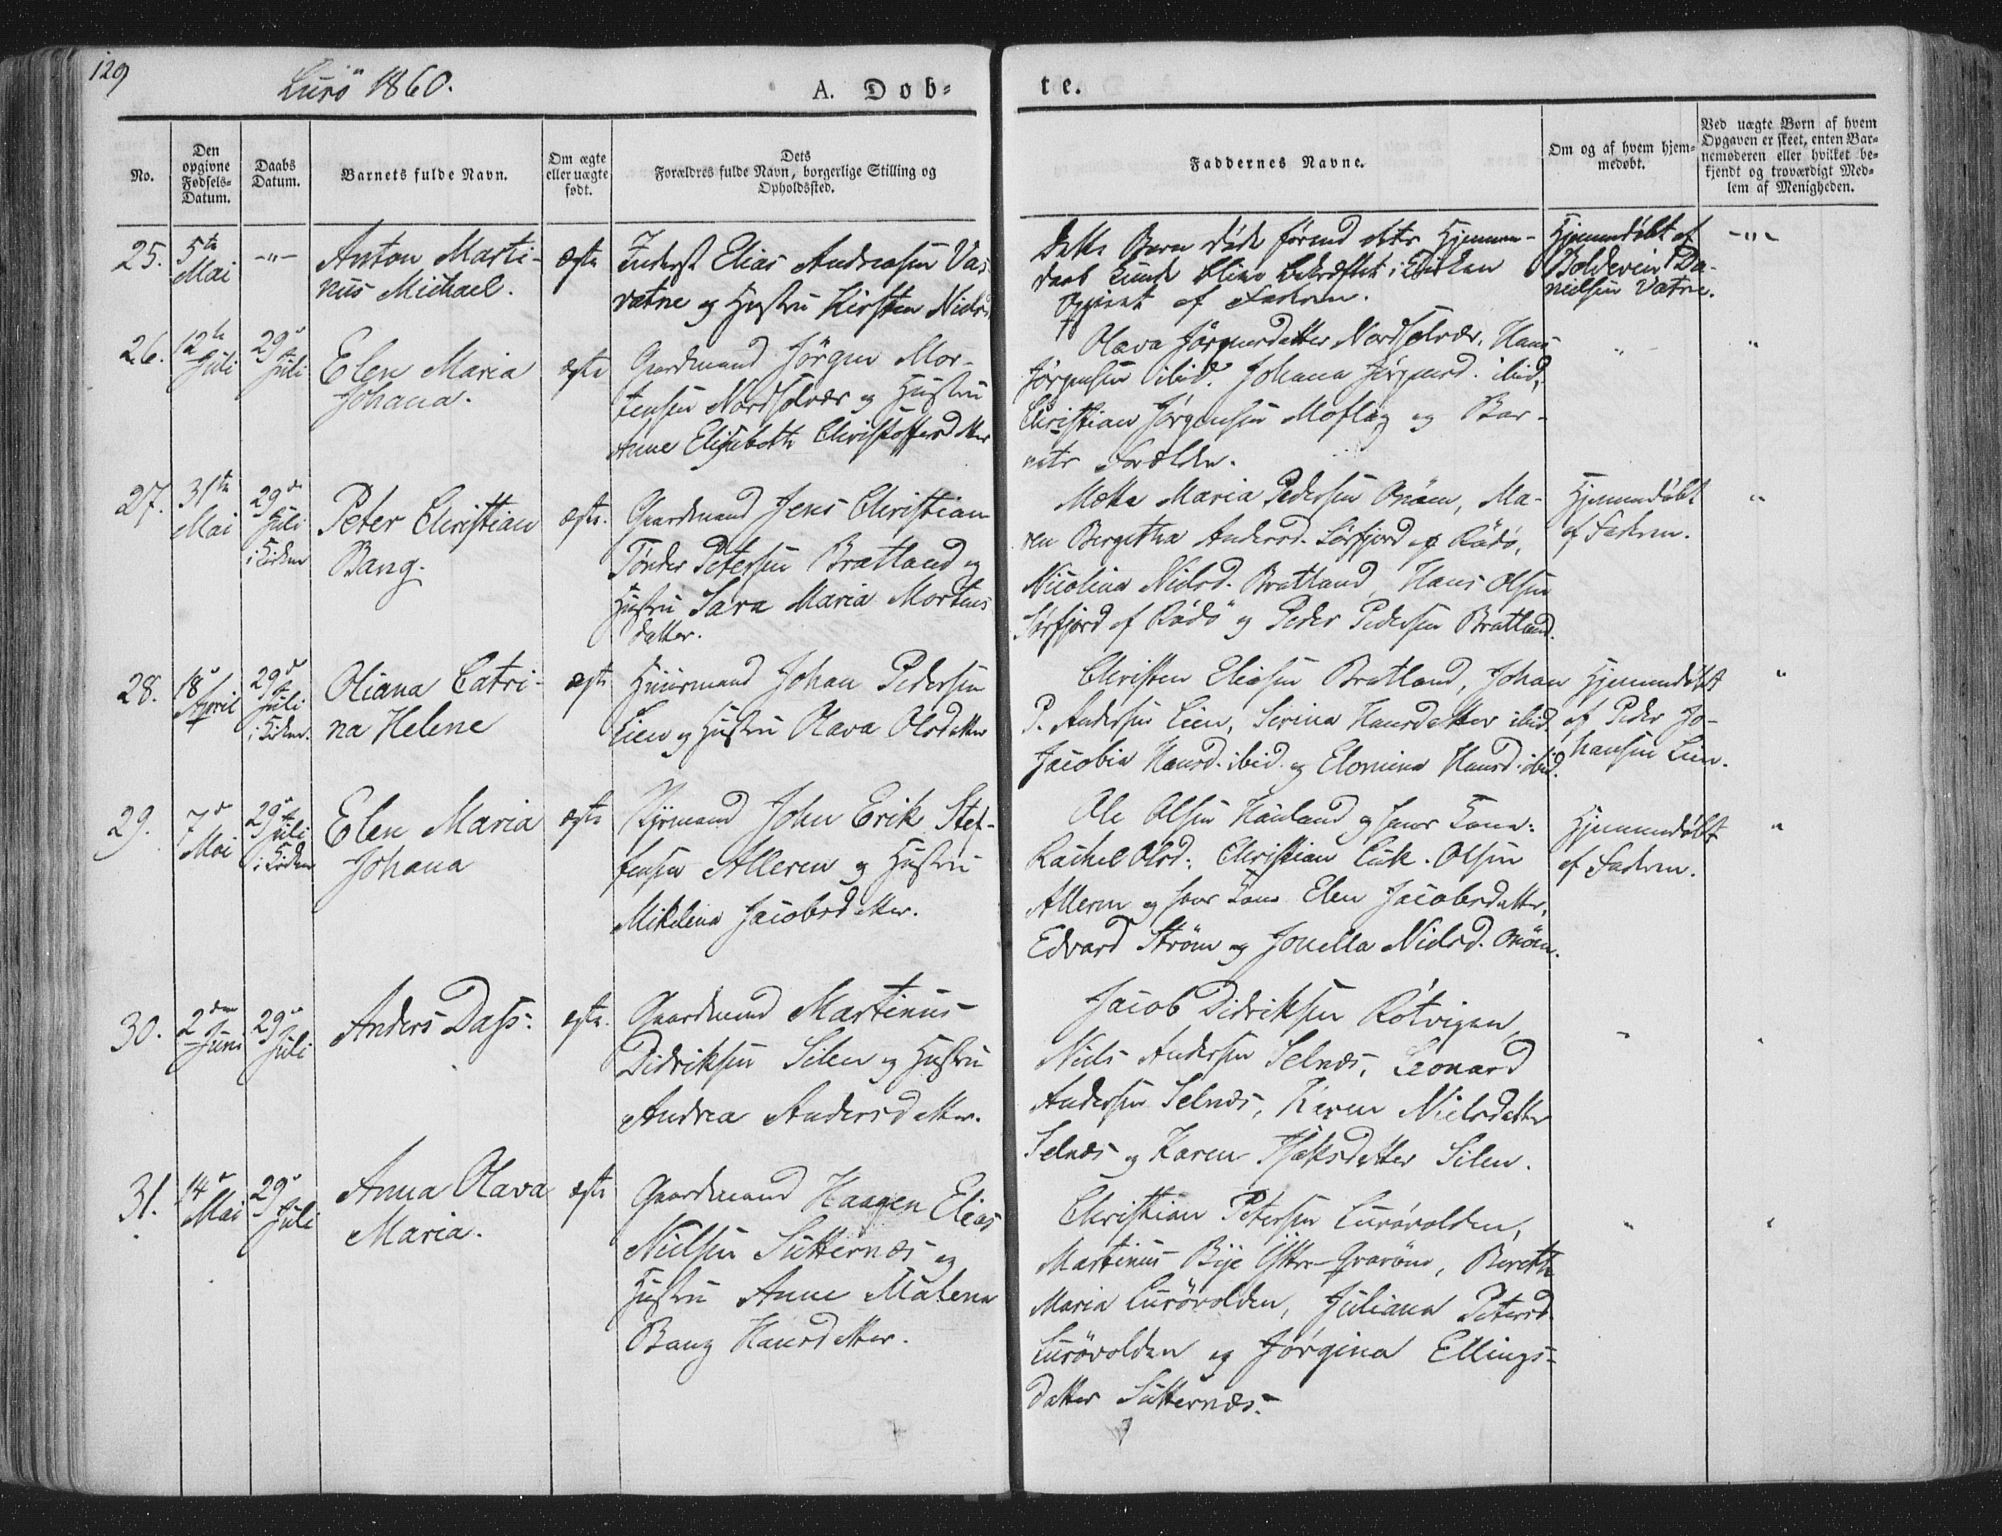 129
Lurö 1860.
A. Döb-
te.
No.
Den opgivne Fødsels-Datum.
Daabs Datum.
Barnets fulde Navn.
Om ægte eller uægte født.
Dets Forældres fulde Navn, borgerlige Stilling og Opholdssted.
Faddernes Navne.
Om og af hvem hjemmedøbt.
Ved uægte Børn af hvem Opgaven er skeet, enten Barnemoderen eller hvilket bekjendt og troværdigt Medlem af Menigheden.
25. 5te Mai -"- Anton Marti-
nus Michael.
ægte
Inderst Elias Andreasen Vas
vatne og Hustru Kirsten Niels
Dette Barn døde förend dets Hjemme-
daab kunde blive bekræftet i Kirken
af Faderen.
Hjemmedøbt af
Boldevin Da-
nielsen Vatne.
-"-
26. 12te Juli 29de Juli Elen Maria
Johana.
ægte
Gaardmand Jörgen Mor-
tensen Nordsolvær og Hustru
Anne Elisabeth Christoffersdatter
Olava Jörgensdatter Nordsolvær, Hans
Jörgensen ibid. Johana Jörgensd. ibid,
Christian Jörgensen Moflag og Bar-
nets Forældre.
"
"
27. 31te Mai 29de Juli i Kirken Peter Christian
Bang.
ægte.
Gaardmand Jens Christian
Tönder Petersen Bratland og
Hustru Sara Maria Mortens
datter.
Metta Maria Pedersen Onöen, Ma-
ren Bergitha Andersd. Sörfjord af Rödö,
Nicolina Nielsd. Bratland, Hans Olsen
Sörfjord af Rödö og Peder Pedersen Bratland.
Hjemmedøbt
af Faderen.
"
28. 18de April 29de Juli i Kirken. Oliana Catri-
na Helene
ægte
Huusmand Johan Pedersen
Lien og Hustru Olava Olsdatter
Christen Eliasen Bratland, Johan
P. Andersen Lien, Sirina Hansdatter ibid.
Jacobia Hansd. ibid. og Elomina Hansd. ibid.
Hjemmedøbt
af Peder Jo-
hansen Lien.
"
29. 7de Mai 29de Juli i Kirken Elen Maria
Johana
ægte
John Erik Stef-
fensen Alleren og Hustru
Mikelina Jacobsdatter.
Ole Olsen Hauland og hans Kone
Rachel Olsd. Christian Erik Olsen
Alleren og hans Kone Elen Jacobsdatter,
Edvard Ström og Jonella Nielsd. Onöen.
Hjemmedøbt
af Faderen.
"
30. 2den Juni 29de Juli Anders Dass.
ægte.
Gaardmand Martinus
Didriksen Silen og Hustru
Andrea Andersdatter.
Jacob Didriksen Rötvigen,
Niels Andersen Selnæs, Leonard
Andersen Selnæs, Karen Nielsdatter
Selnæs og Karen Isaksdatter Silen.
"
"
31. 14de Mai 29de Juli Anna Olava
Maria.
ægte
Gaardmand Haagen Elias
Nielsen Sütternæs og
Hustru Anne Malena
Bang Hansdatter.
Christian Petersen Lurövolden,
Martinus Bye Yttre Qvaröen, Bereth
Maria Lurövolden, Juliana Petersd.
Lurövolden og Jörgina Ellings-
datter Sütternæs.
"
"